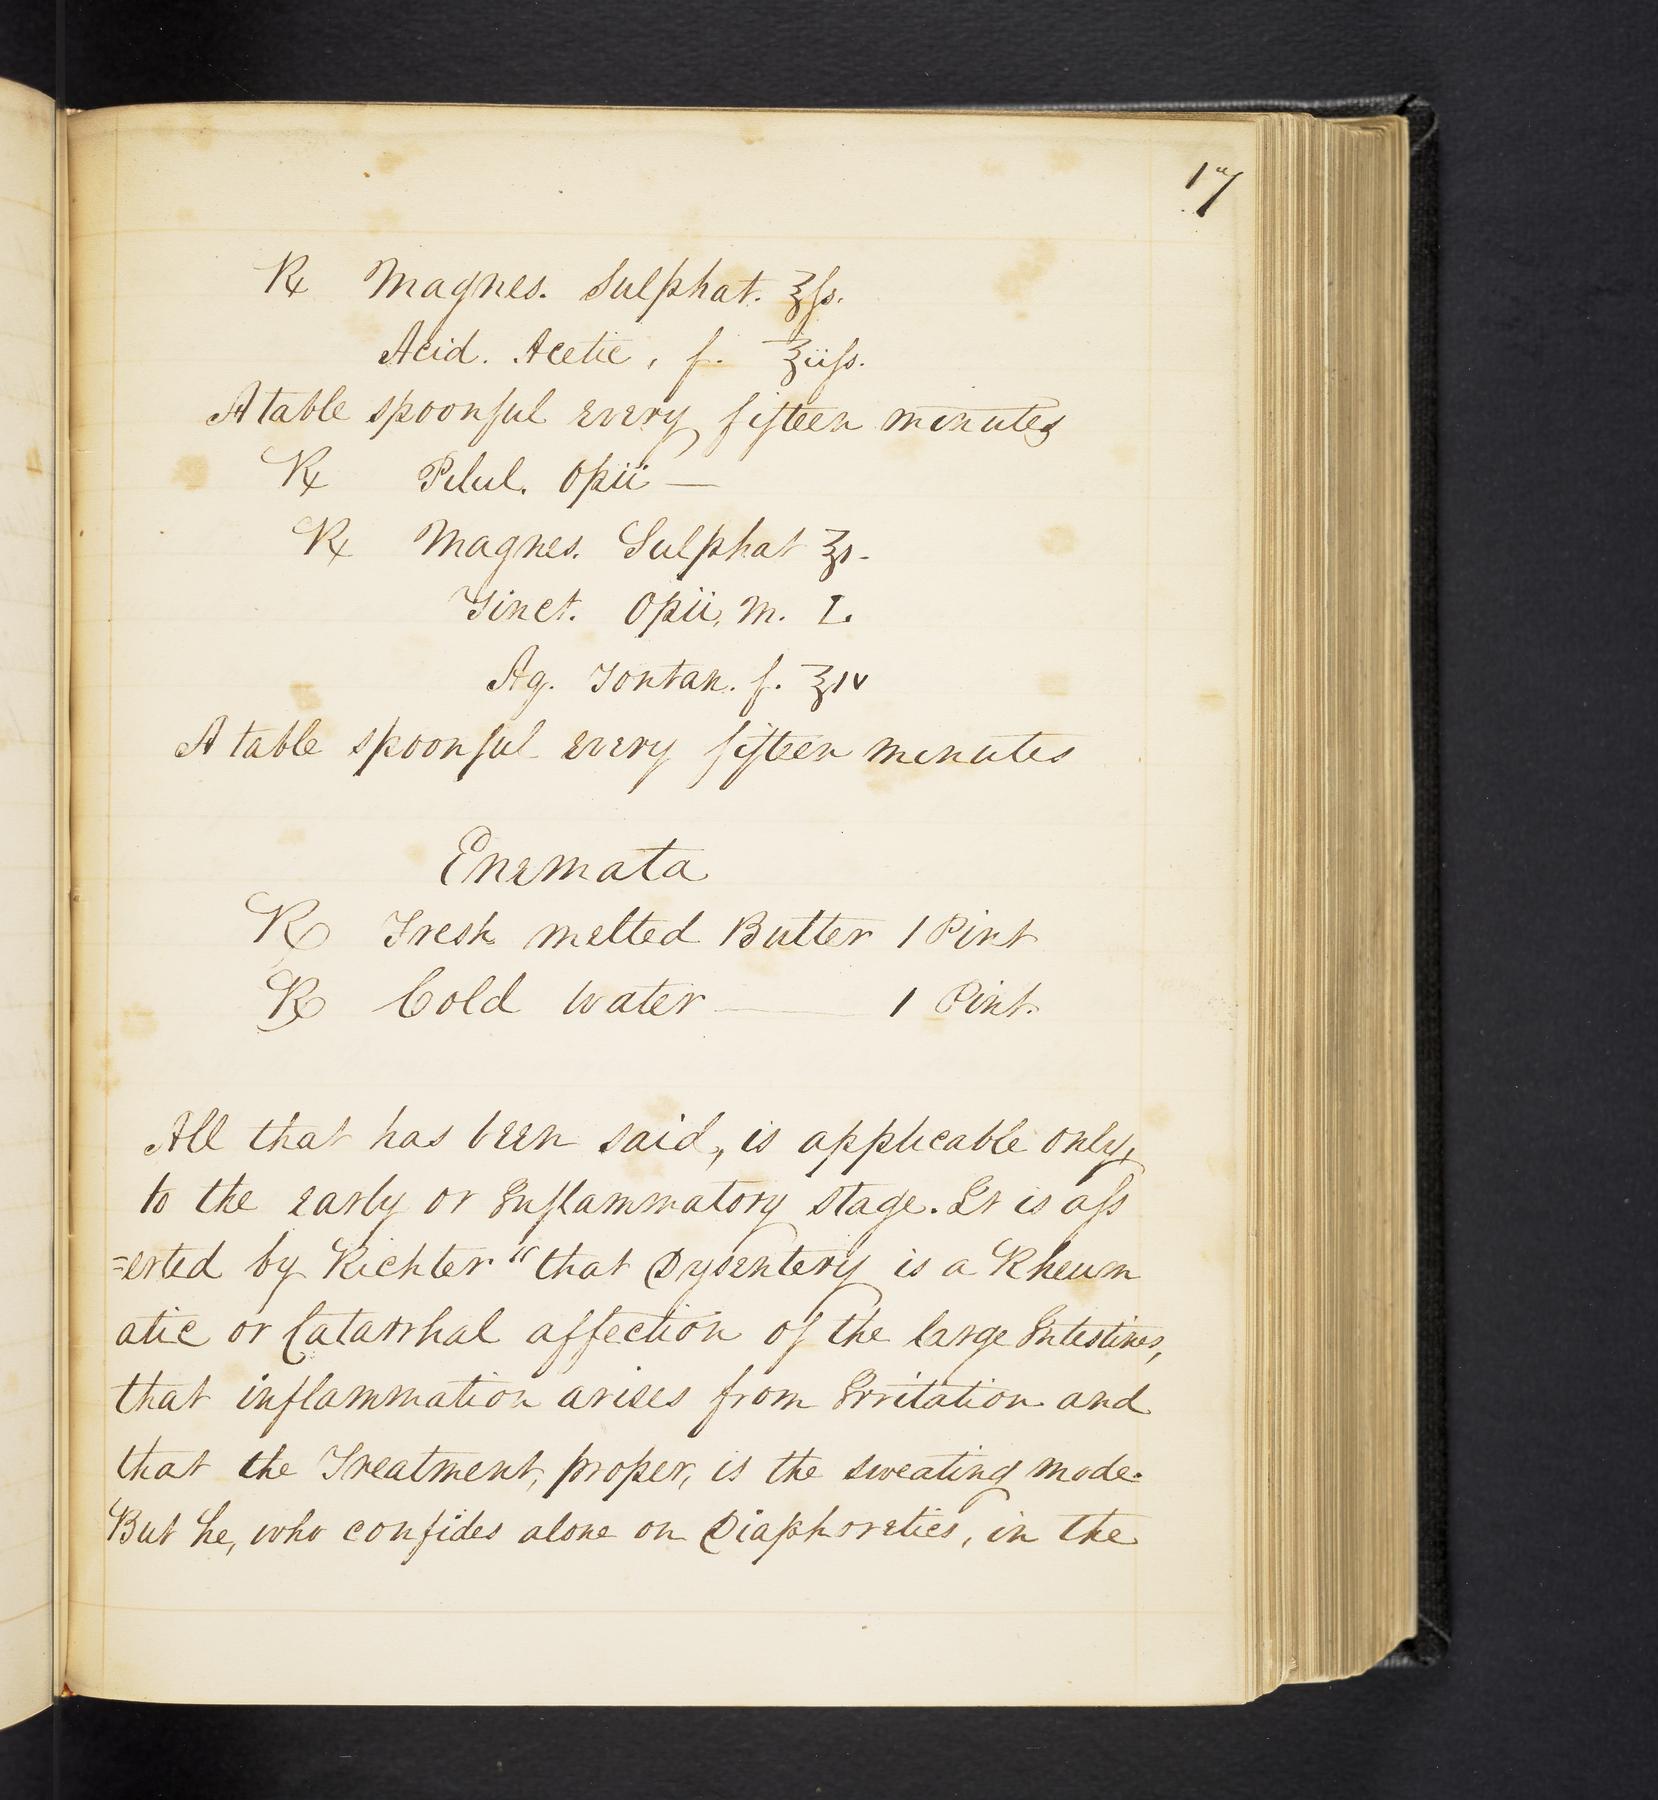 17
℞ Magnes. Sulphat. ℥ſs.
Acid. Acetic, f. ℥iiſs.
A table spoonful every fifteen minutes
℞ Pilul. Opii —
℞ Magnes. Sulphat ℥1-
Tinct. Opii, m. L.
Aq. Fontan. f. ℥IV
A table spoonful every fifteen minutes
Enemata
℞ Fresh melted Butter 1 Pint
℞ Cold water — 1 Pint.
All that has been said, is applicable only,
to the early or Inflammatory stage. It is aſs
=erted by Richter "that Dysentery is a Rheum
atic or Catarrhal affection of the large Intestines,
that inflammation arises from Irritation and
that the Treatment, proper, is the sweating mode.
But he, who confides alone on Diaphoretics, in the